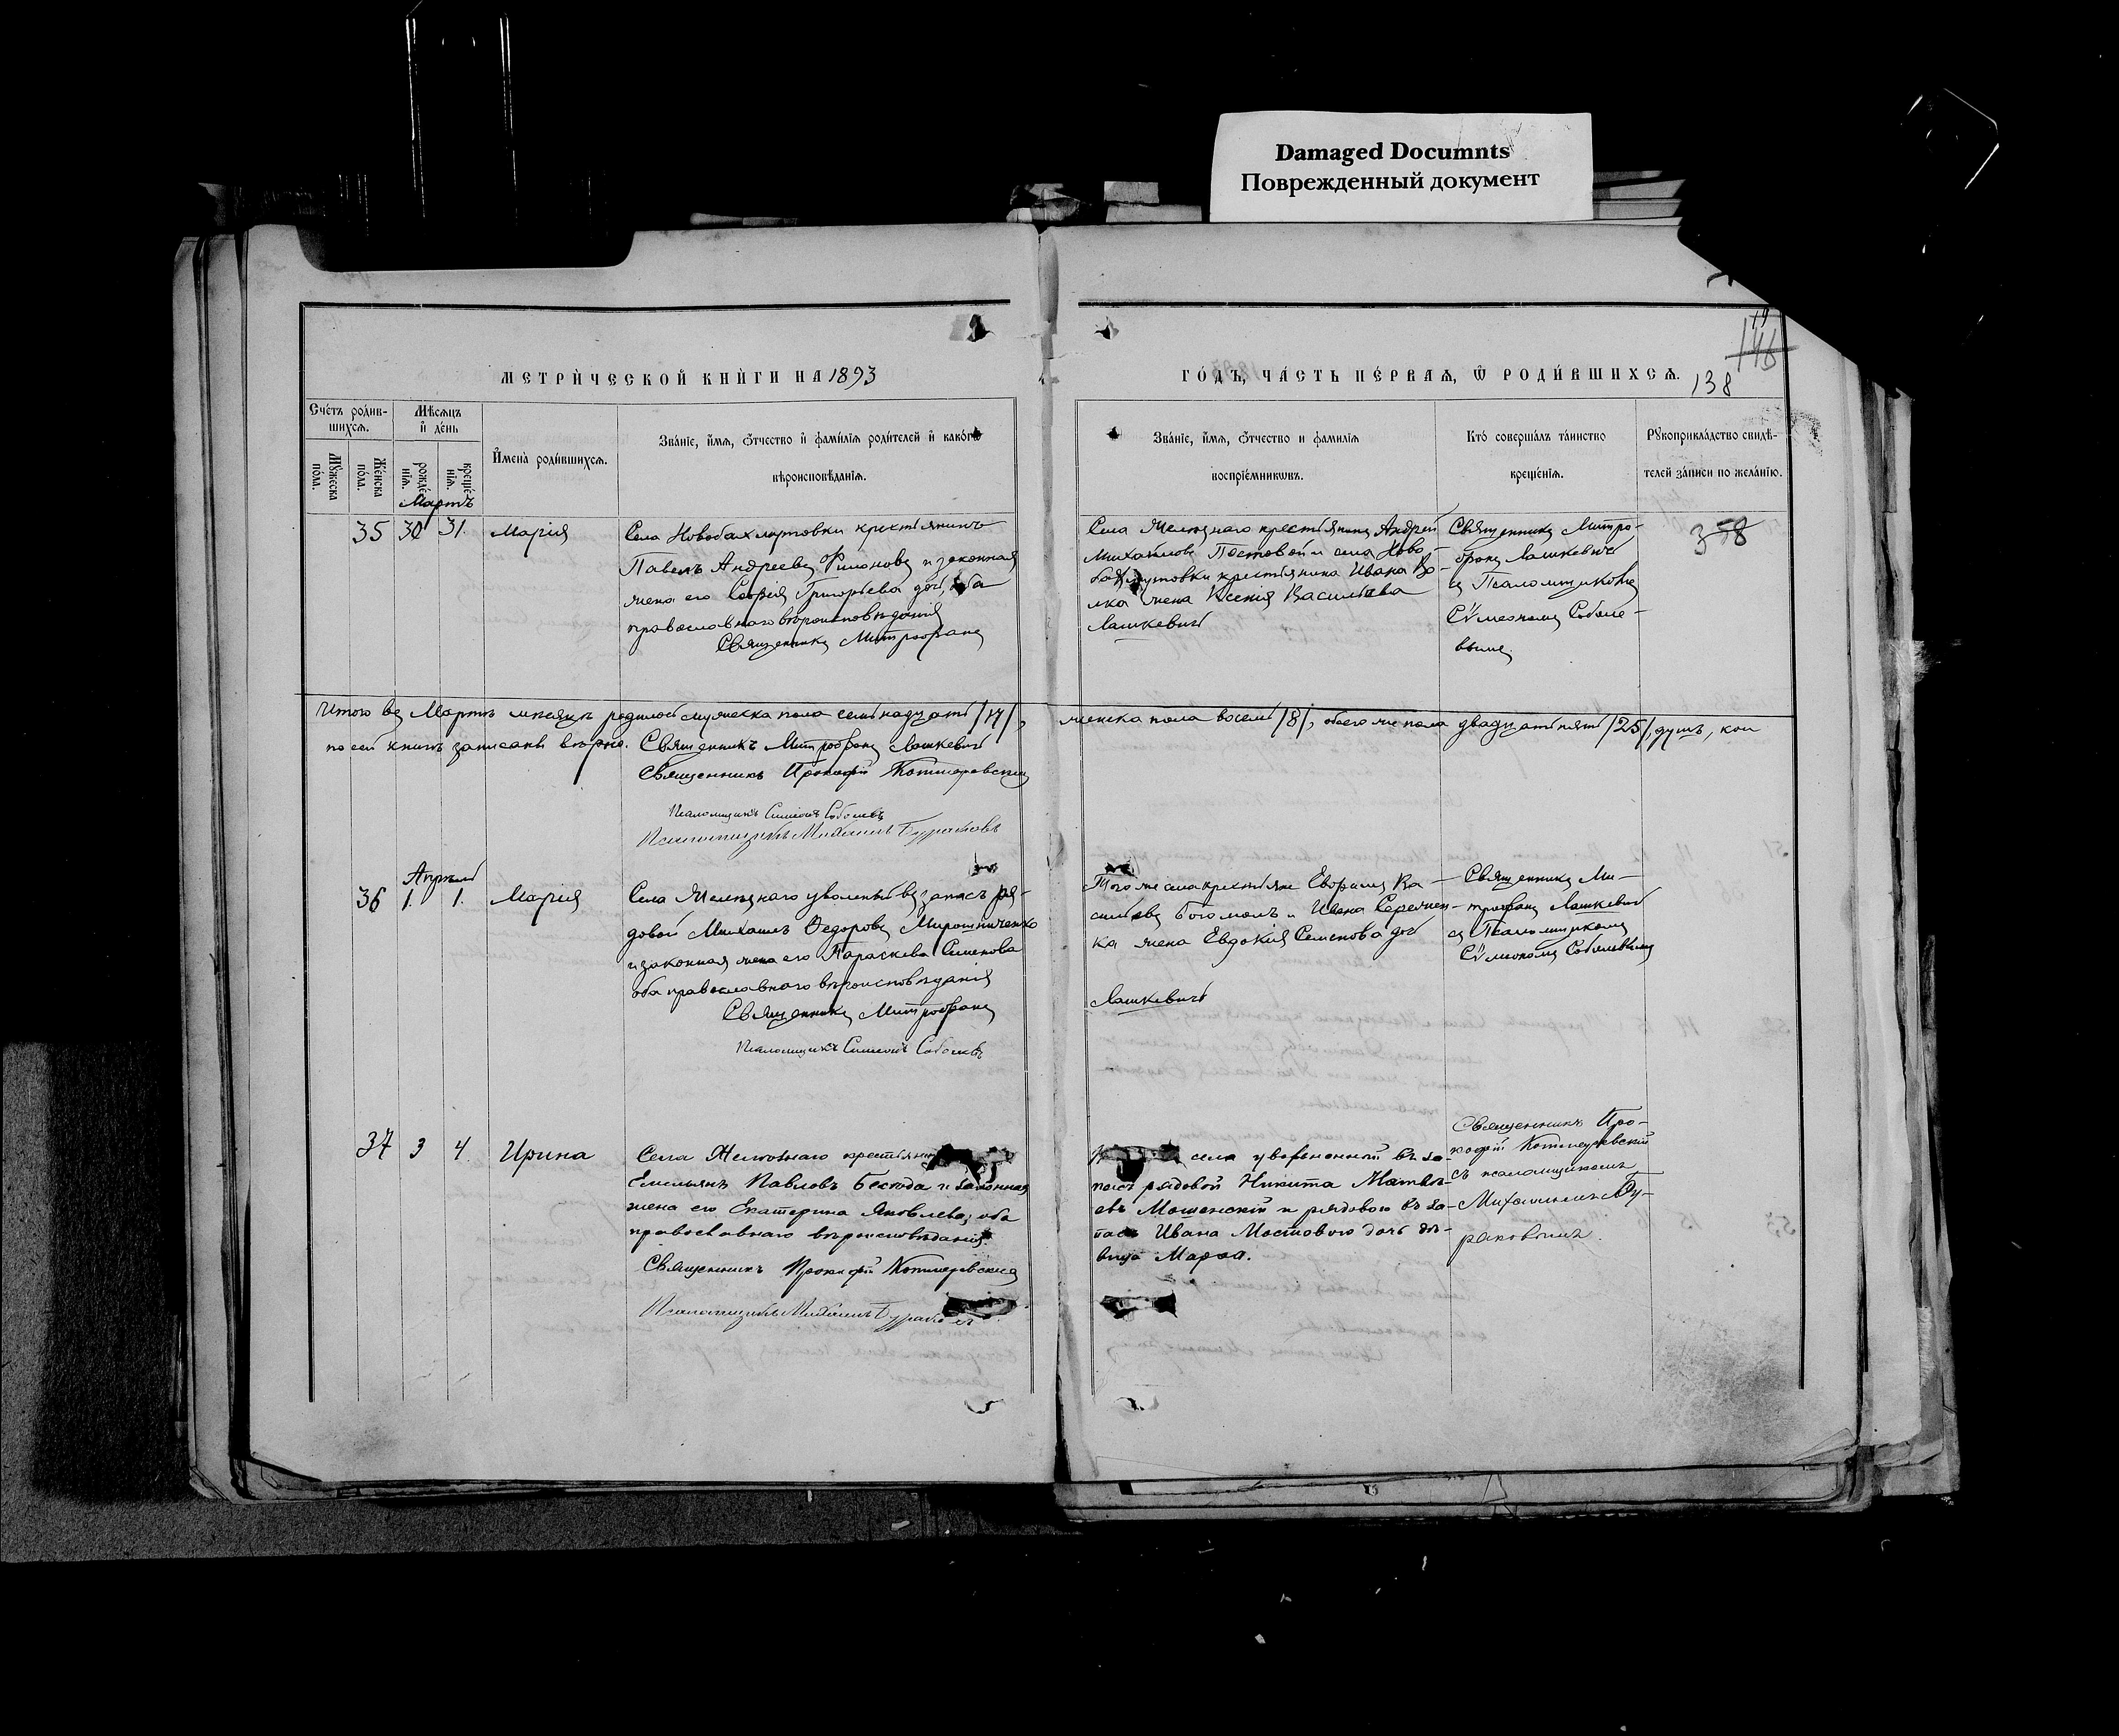 Damaged Documnts
Поврежденный документ
МЕТРИЧЕСКОЙ КНИГИ НА 1893
ГОДЪ, ЧАСТЬ ПЕРВАЯ, Ѿ РОДИВШИХСЯ.
138
Счетъ родив-
шихся.
Мѣсяцъ
и день
Имена родившихся.
Званіе, имя, ѿчество и фамилія родителей и какогѡ
вѣроисповѣданія.
Мужеска пола.
Женска пола.
рождє-нія.
крещє-нія.
Званіе, имя, ѿчество и фамилія
воспріемникѡвъ.
Кто совершалъ таинство
крещенія.
Рукоприкладство свидѣ-
телей записи по желанію.
Мартъ
35 30 31. Марія
Села Новобахмутовки крестьянинъ
Павелъ Андреевъ Филоновъ и законная
жена его Софія Григорьева дочь, оба
православнаго вѣроисповѣданія
Священникъ Митрофанъ
Села Желѣзнаго крестьянинъ Андрей
Михайловъ Постовой и села Ново-
бахмутовки крестьянина Ивана Во-
лка жена Ксенія Васильева
Лашкевичъ
Священникъ Митро-
фанъ Лашкевичъ
съ Псаломщикомъ
Сѵмеономъ Соболе-
вымъ
358
Итого въ Мартѣ мѣсяцѣ родилось мужеска пола семнадцать /17/,
женска пола восемь /8/, обоего же пола двадцать пять /25/, душъ, кои
по сей книгѣ записаны вѣрно. Священникъ Митрофанъ Лашкевичъ
Священникъ Прокофій
Псаломщикъ Симеонъ Соболевъ
Псаломщикъ Михаилъ Бураковъ
Апрѣль
36 1. 1. Марія
Села Желѣзнаго уволенный въ запасъ ря-
довой Михаилъ Ѳедоровъ Мирошниченко
и законная жена его Параскева Семенова
оба православнаго вѣроисповѣданія
Священникъ Митрофанъ
Псаломщикъ Симеонъ Соболевъ
Того же села крестьяне Евфимъ Ва-
сильевъ Богомолъ и Ивана
ка жена Евдокія Семенова дочь
Лашкевичъ
Священникъ Ми-
трофанъ Лашкевичъ
съ Псаломщикомъ
Сѵмеономъ Соболевымъ
37 3 4. Ирина
Села Желѣзнаго
Емельянъ Павловъ Бесѣда и законная
жена его Екатерина Яковлева, оба
православнаго вѣроисповѣданія.
Священникъ Прокофій
Псаломщикъ Михаилъ Бураковъ
села уволенной въ за-
пасъ рядовой Никита Матвѣ-
евъ Мошенскій и рядового въ за-
пасѣ Ивана Мостового дочь дѣ-
вица Марѳа.
Священникъ Про-
кофій
съ псаломщикомъ
Михаиломъ Бу-
раковымъ.